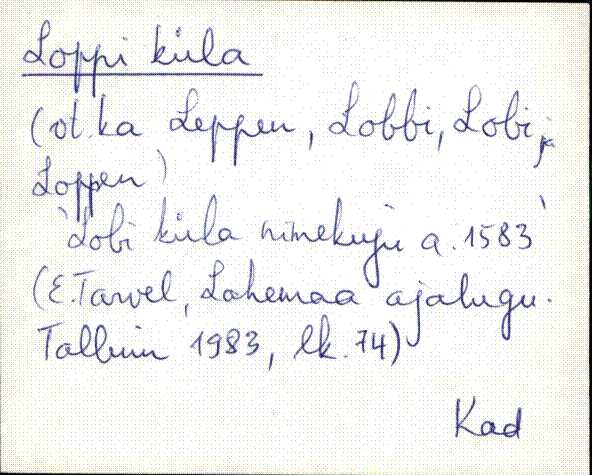 Loppi küla
(vt. ka Leppen, Lobbi, Lobi, ja
Loppen)
'Lobi küla nimekuju a. 1583'
(E. Tarvel, Lahemaa ajalugu.
Tallinn 1983, lk. 74)
Kad